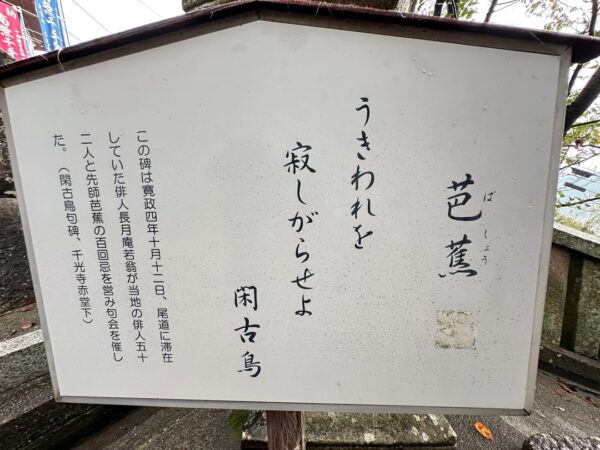 芭蕉
ばしょう
うきわれを
寂しがらせよ
閑古鳥
この碑は寛政四年十月十二日、尾道に滞在
していた俳人長月庵若翁が当地の俳人五十
二人と先師芭蕉の百回忌を営み句会を催し
た。（閑古鳥句碑、千光寺赤堂下）